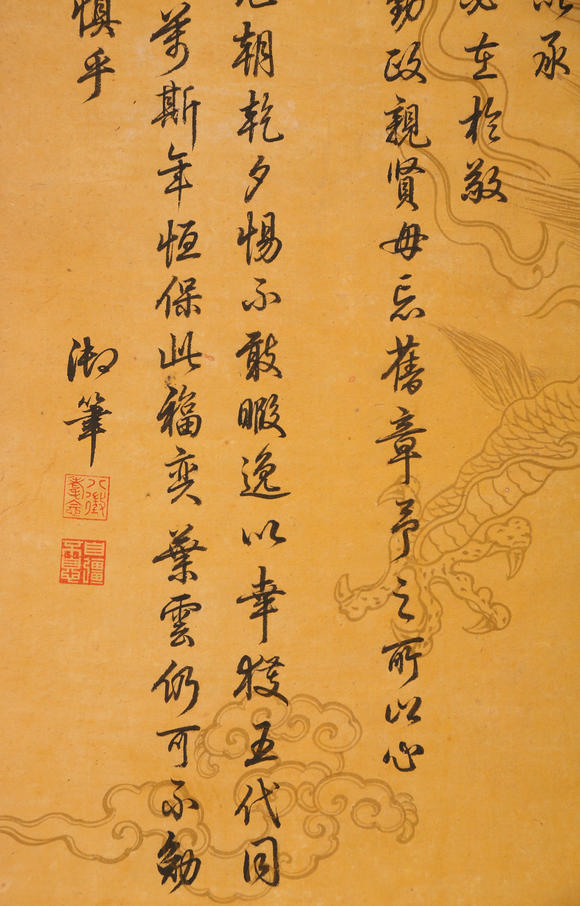 以承
必在於敬
勤政親賢毋忘舊章予之所以心
朝乾夕惕不敢暇逸以幸獲五代同
萬斯年恆保此福奕葉雲仍可不勉
慎乎
御筆
八徵耄念
自彊不息